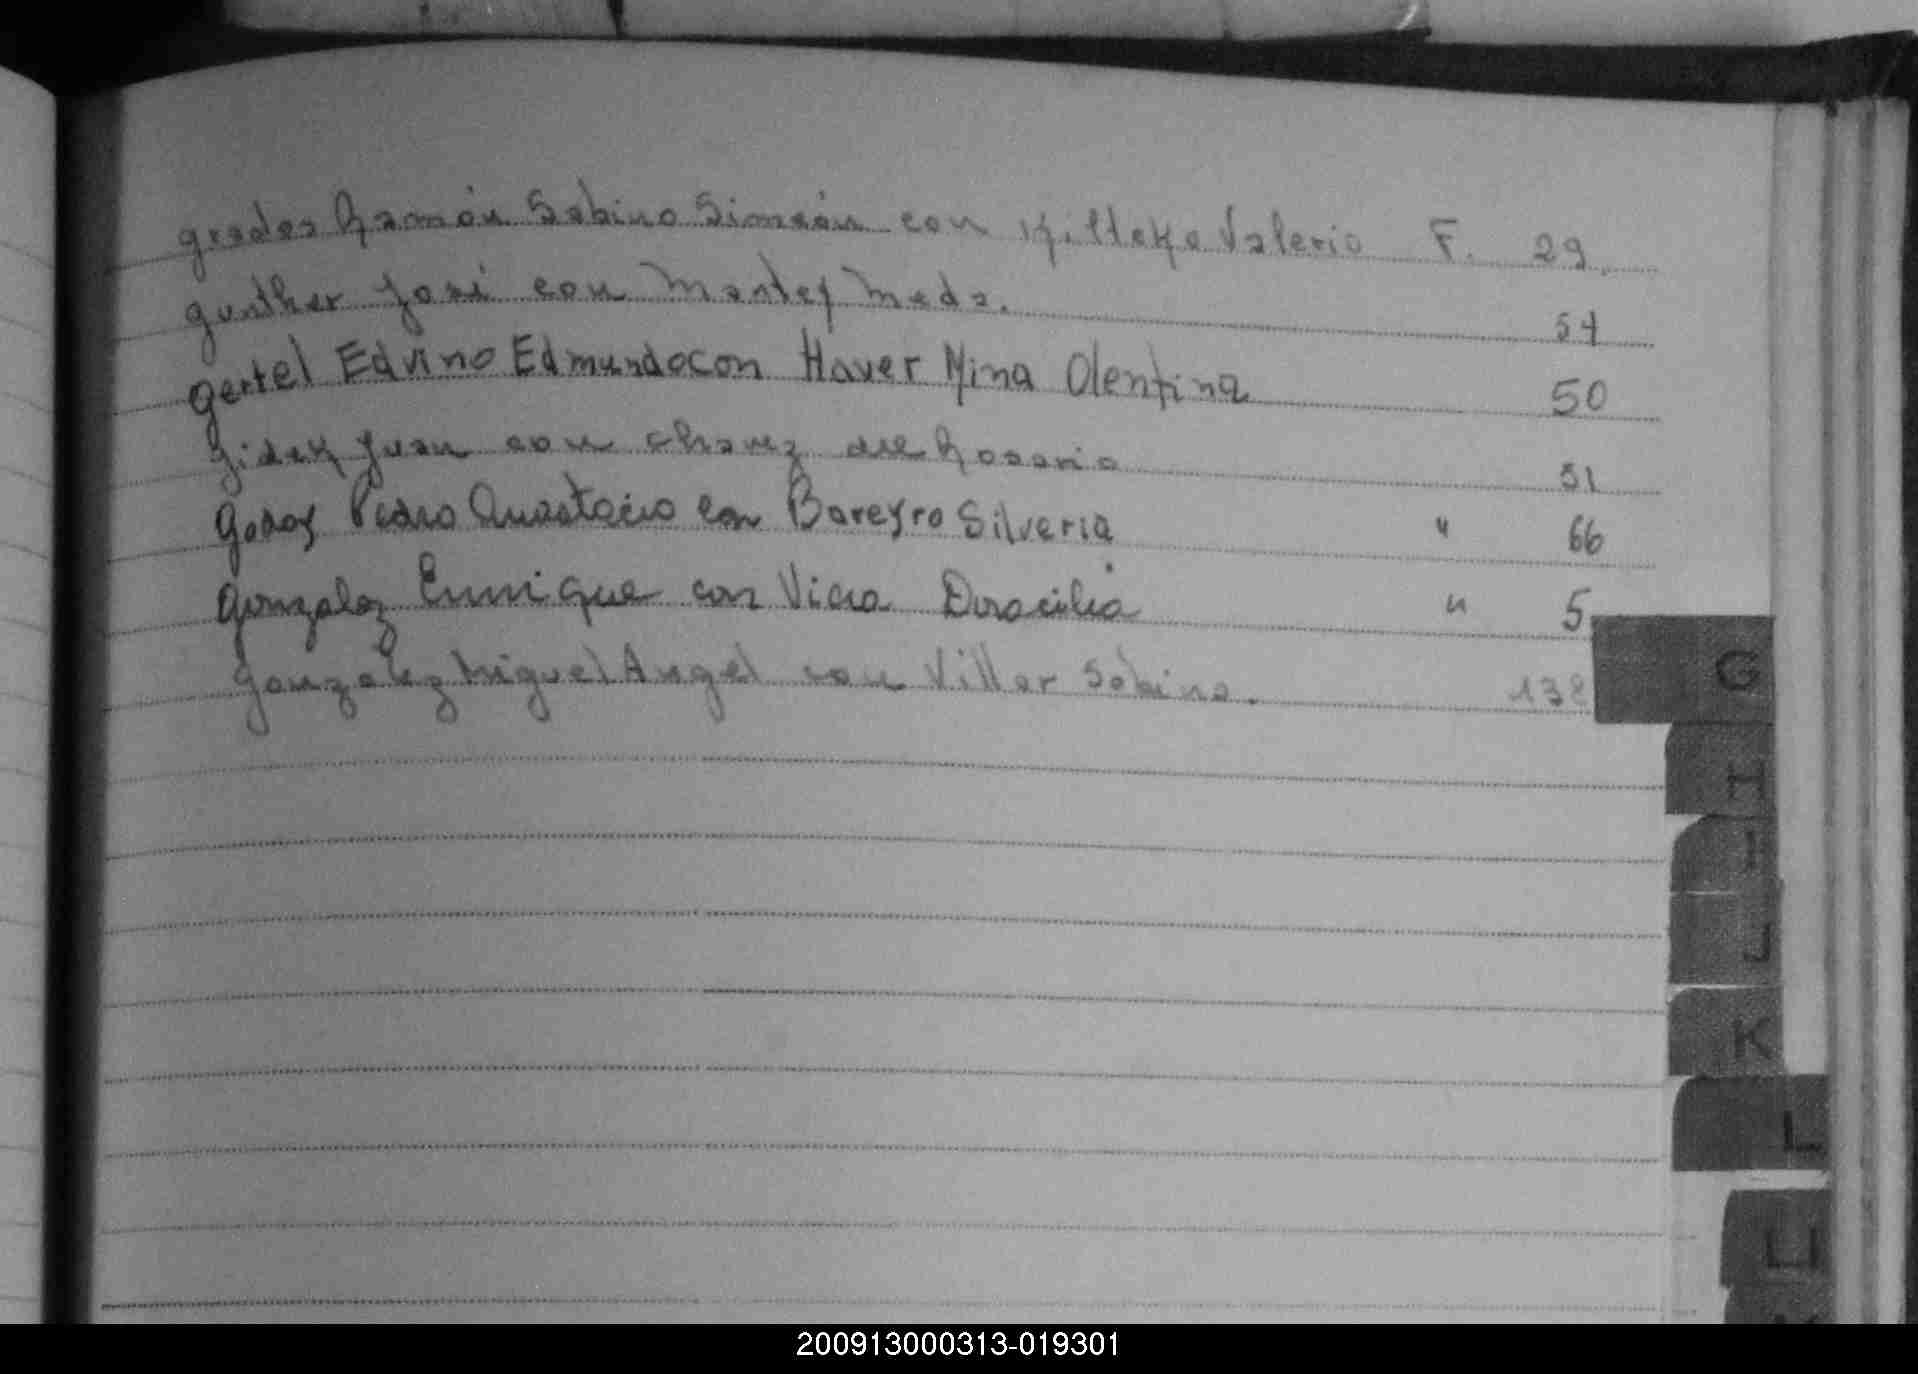 Grades Ramón Sabino Simeón con Valerio F. 29
Gunther José con Meda. 54
Gertel Edvino Edmundo con Haver Mina Olentina 50
Juan con Chavez del Rosario 51
Godoy Pedro Anastacio con Bareyro Silveria " 66
Gonzalez Enrrique con Viera " 5
Gonzalez Miguel Angel con Villar Sabina. 138
G
H
I
J
K
L
LL
200913000313-019301